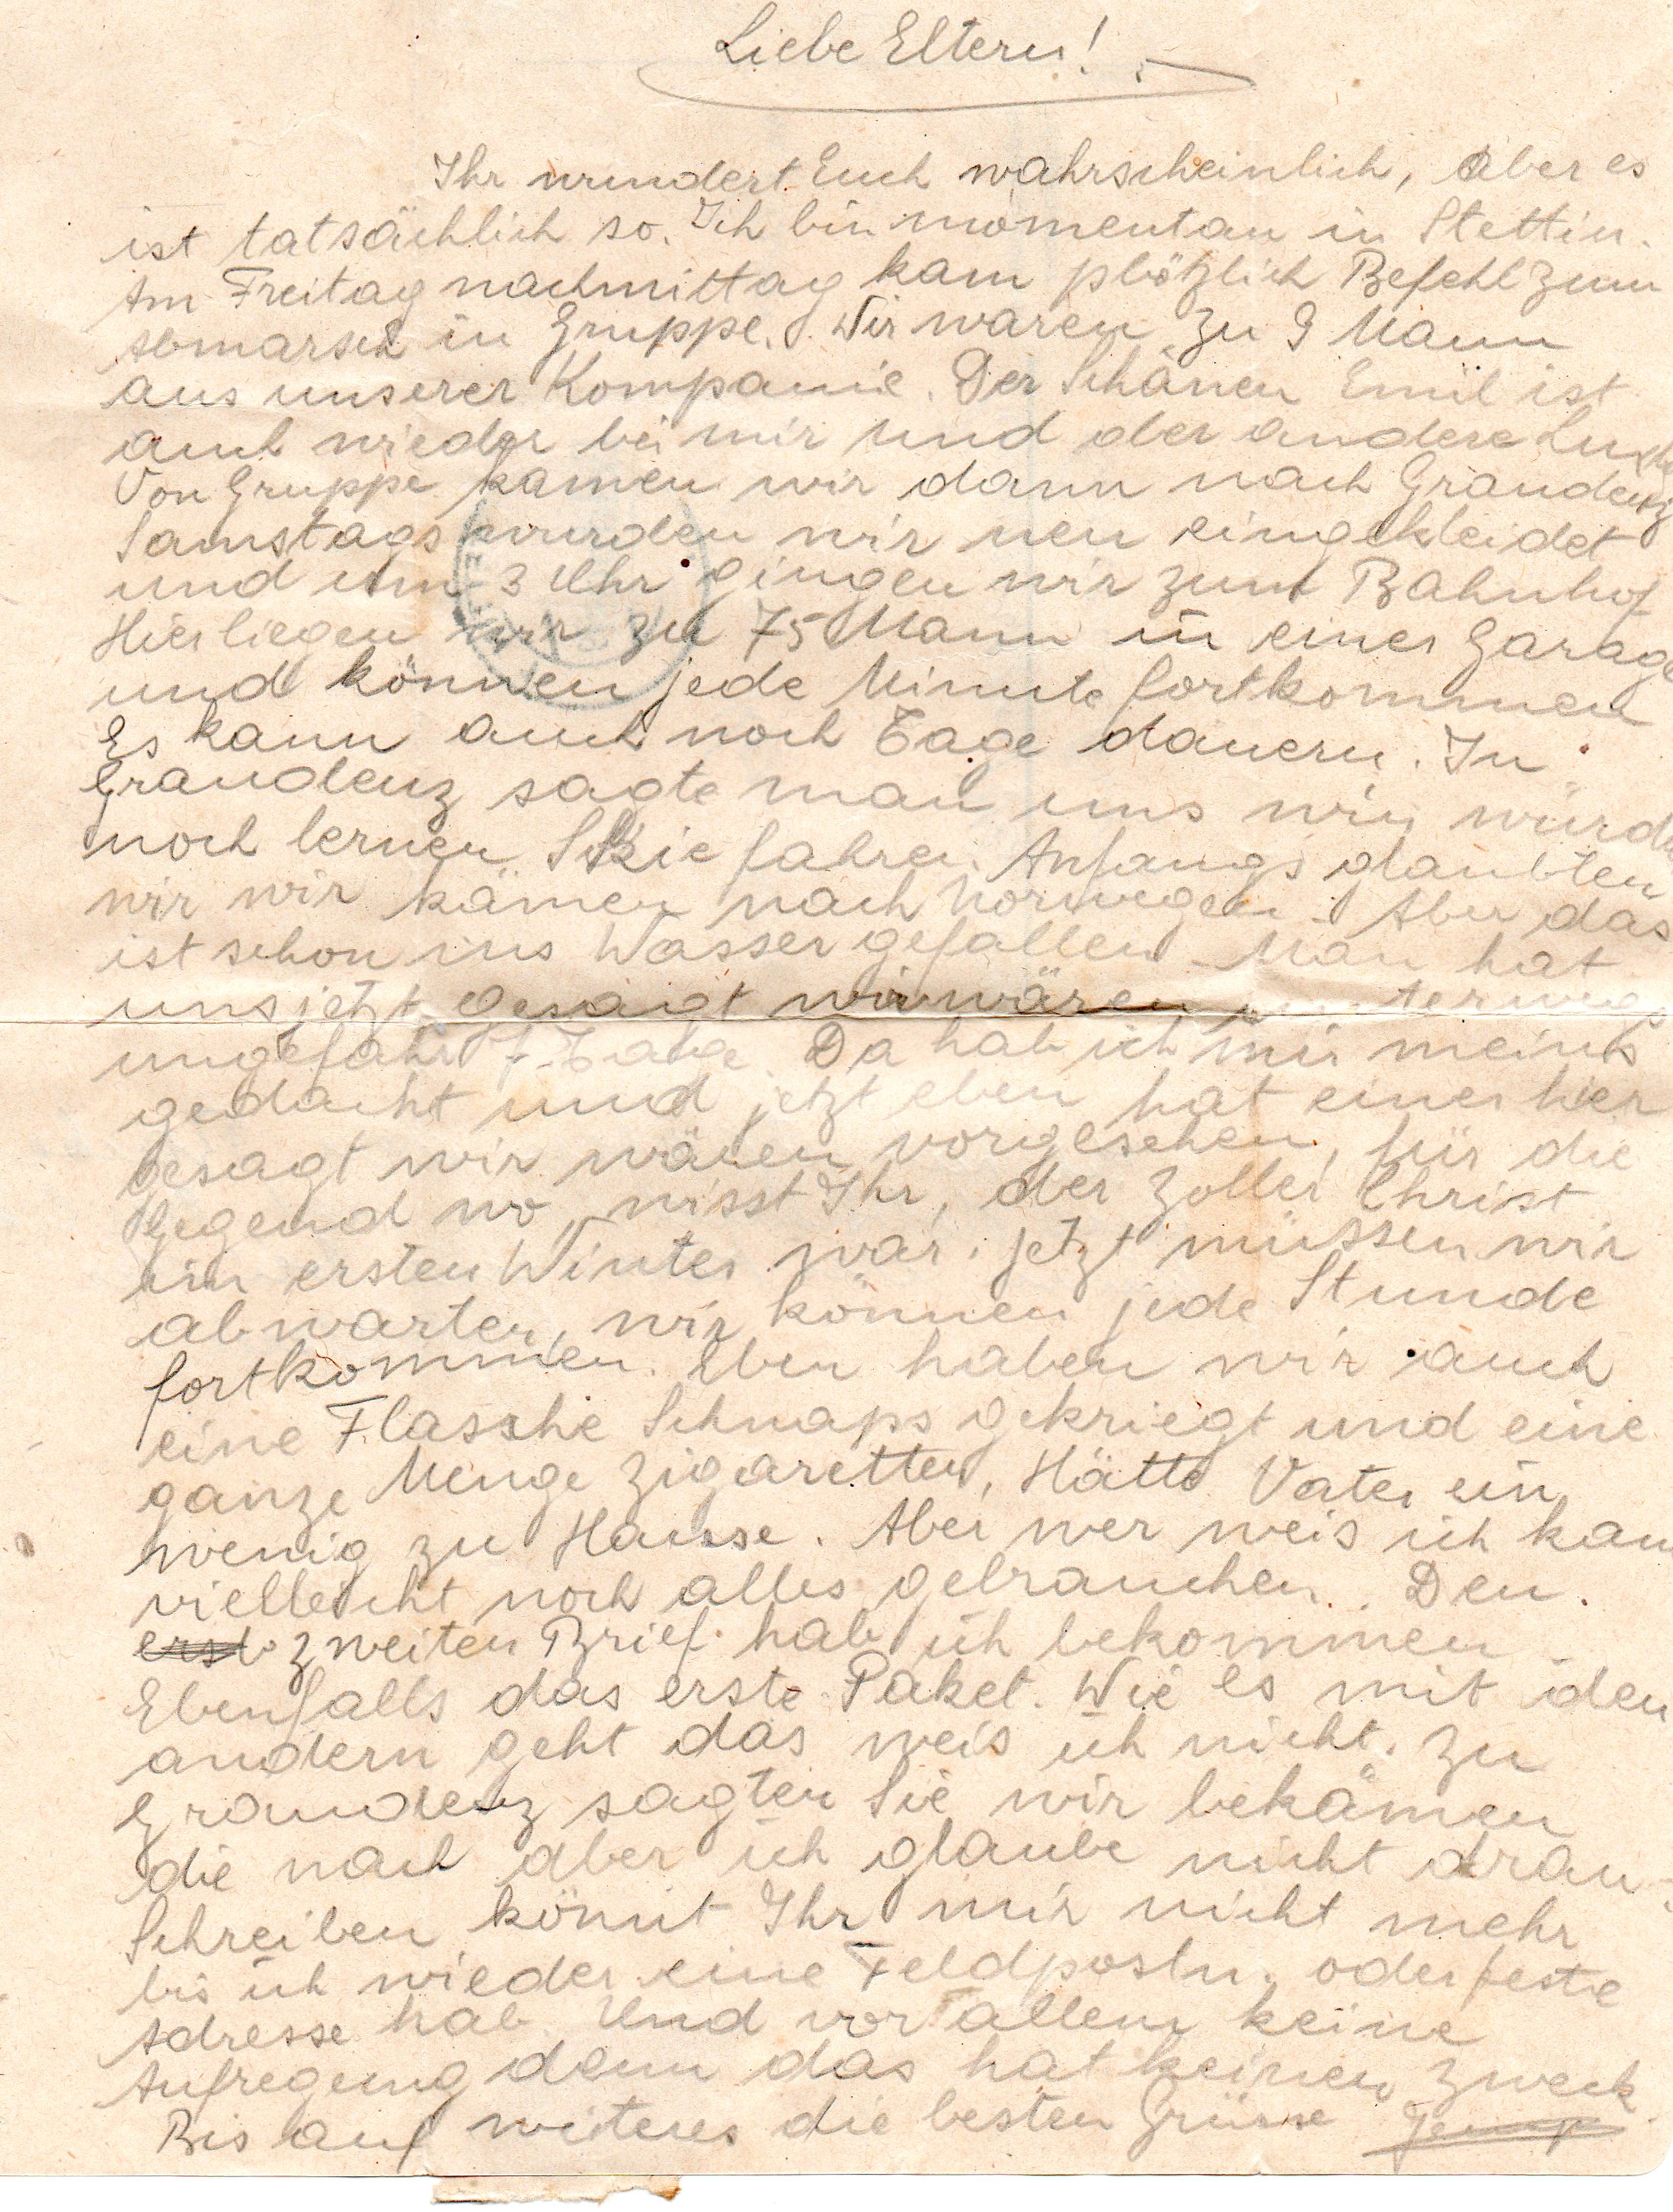 Liebe Eltern!
Ihr wundert Euch wahrscheinlich, Aber es
ist tatsächlich so. Ich bin momentan in Stettin.
Am Freitag nachmittag kam plötzlich Befehl zum
abmarsch in Gruppe. Wir waren zu 9 Mann
aus unserer Kompanie. Der Schänen Emil ist
auch wieder bei mir und der andere
Von Gruppe kamen wir dann nach Graudenz
Samstags wurden wir neu eingekleidet
und um 3 Uhr gingen wir zum Bahnhof
Hier liegen wir zu 75 Mann in einer Garage
und können jede Minute fortkommen
Es kann auch noch Tage dauern. In
Graudenz sagte man uns wir würden
noch lernen Skie fahren. Anfangs glaubten
wir wir kämen nach Norwegen. Aber das
ist schon ins Wasser gefallen. Man hat
uns jetzt gesagt wir wären unterwegs
ungefähr 7 Tage. Da hab ich mir meins
gedacht und jetzt eben hat einer hier
gesagt wir wären vorgesehen, für die
Gegend wo, wisst Ihr, der Zoller Christ
im ersten Winter war. jetzt müssen wir
abwarten, wir können jede Stunde
fortkommen. Eben haben wir auch
eine Flasche Schnaps gekriegt und eine
ganze Menge Zigaretten, Hätte Vater ein
wenig zu Hause. Aber wer weis ich kann
vielleicht noch alles gebrauchen. Den
erst zweiten Brief hab ich bekommen
Ebenfalls das erste Paket. Wie es mit den
andern geht das weis ich nicht. Zu
Graudenz sagten Sie wir bekämen
die nach aber ich glaube nicht dran.
Schreiben könnt Ihr mir nicht mehr
bis ich wieder eine Feldpostn. oder feste
Adresse hab. Und vor allem keine
Aufregung denn das hat keinen Zweck.
Bis auf weiteres die besten Grüsse Jemp